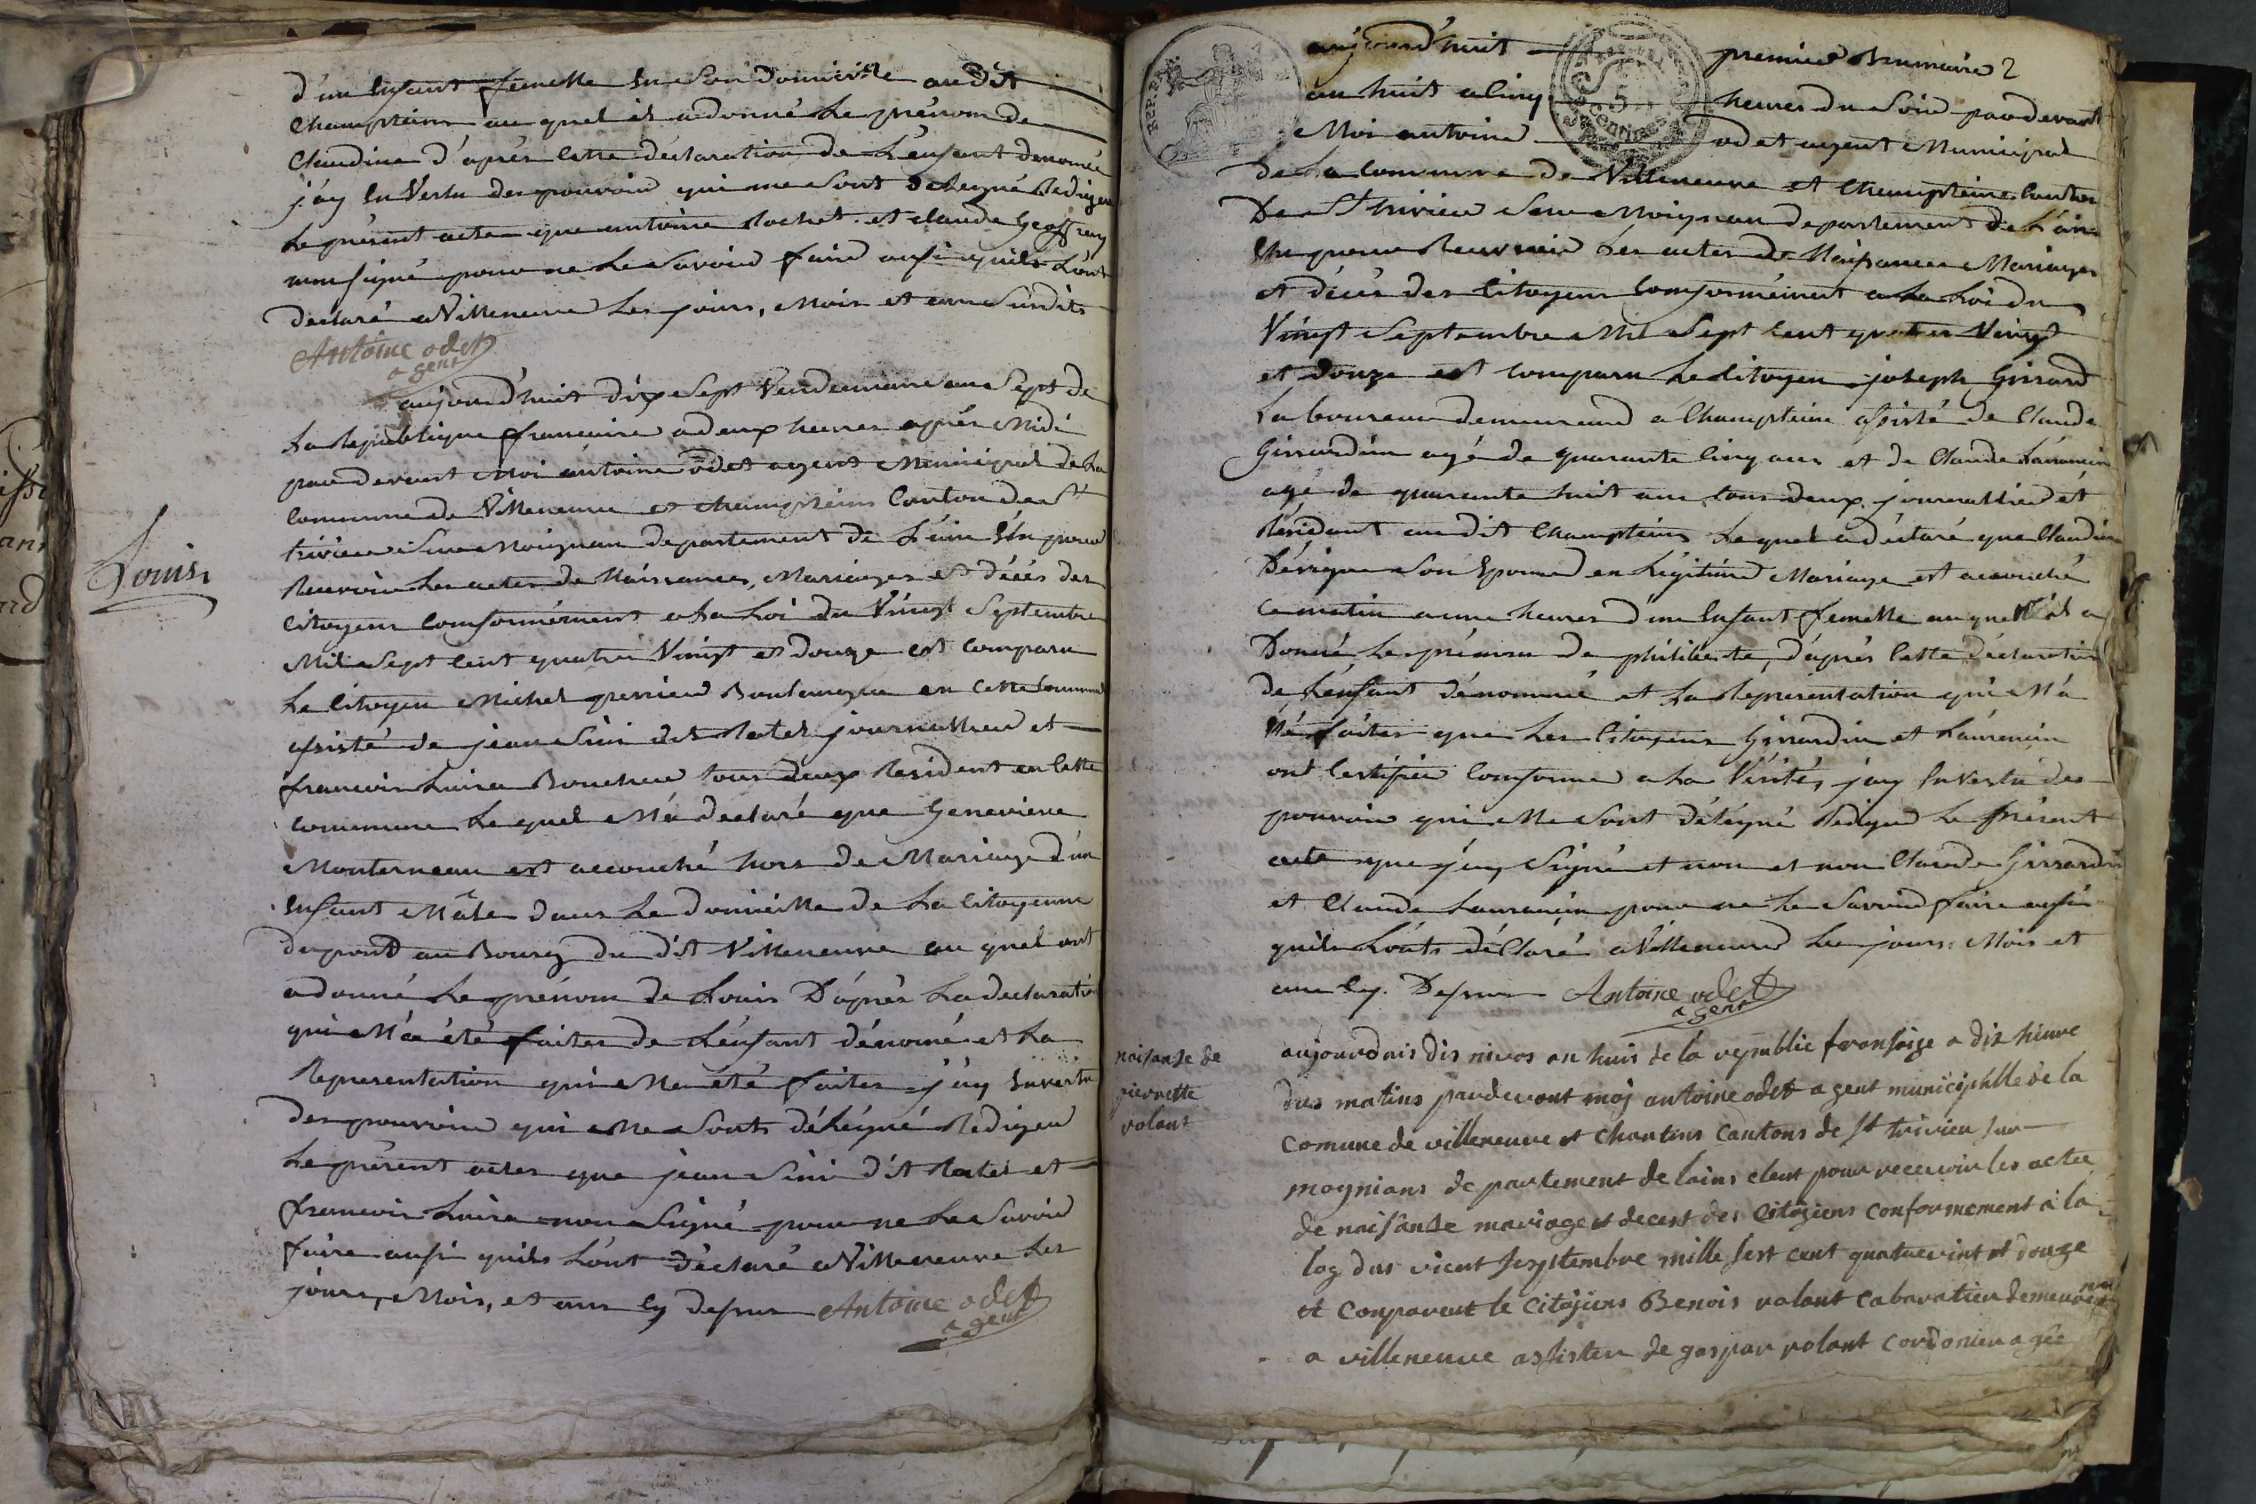 d'un Enfant femelle En Son domicille audit
Champteins au quel il a donné le prénom de
Claudine d'après Cette déclaration de L'enfant denomé
j'ay En Vertu des pouvoirs qui me sont delegué Rediger
Le présent acte que antoine Rochet et claude Geoffray
non signé pour ne le Savoir faire ausi quils L'ont
déclaré a Villeneuve Les jours, Mois et ans Susdits
Antoine odet
agent
aujourd'huit dix Sept Vendemiaire an Sept de
La Republique francaise a deux heures après Midi
par devant Moi antoine odet agent Municipal de La
Commune de Villeneuve et champteins Canton de St
trivier Sur Moignan departement de L'ain Elu pour
Recevoir Les actes de Naissances, Mariages et décés des
Citoyens Conformément a La Loi du Vingt Septembre
Mil Sept Cent quatre Vingt et douze est Comparu
Le Citoyen Michel perrier Boulanger en Cette Commune
asisté de jean Sini dit Ratel journallier et
francois Luira Boucher tous deux Resident en Cette
Commune Le quel M'a declaré que Genevieve
Monterneau est accouché hors de Mariage d'un
Enfant Mâle dans Le domicille de La Citoyenne
dupont au Bourg du dit Villeneuve au quel ont
a donné Le prénom de Louis D'après La declaration
qui M'a été faites de L'enfant dénomé et La
Representation qui M'en été faites j'ay En vertu
des pouvoirs qui Me Sonts délégué Rediger
Le présent actes que jean Sini dit Ratel et
francois Luira non Signé pour ne Le Savoir
faire ausi quils L'ont déclaré a Villeneuve Les
jours, Mois, et ans Cy desus Antoine odet
agent
Louis
REP. FRA.
5 centimes
aujourd'huit premier Brumaire
an huit a Cinq heures du Soir par devant
Moi antoine odet agent Municipal
de La Commune de Villeneuve et Champteins Canton
De St trivier Sur Moignan departement de L'ain
Elu pour Recevoir Les actes de Naisances Mariages
et décés des Citoyens Conformément a La Loi du
Vingt Septembre Mil Sept Cent quatre Vingt
et douze est Comparu Le Citoyen joseph Girrard
Laboureur demeurant a Champteins asisté de Claude
Girrardin agé de quarante Cinq ans et de Claude Laurancin
agé de quarante huit ans tous deux journallier et
Résidant audit Champteins Le quel a déclaré que Claudine
Son Epouse en Légitime Mariage est acouché
Ce matin a une heures d'un Enfant femelle au quel il a
Donné Le prénom de philiberte, d'après Cette déclaration
de L'enfant dénommé et La Representation qui M'a
été faites que Les Citoyens Girrardin et Laurancin
ont Certifier Conforme a La Vérités, j'ay En Vertu des
pouvoirs qui Me Sont délégué Rediger Le présent
acte que j'ay Signé et non et non Claude Girrardin
et Claude Laurancin pour ne Le Savoir faire ausi
quils L'onts déClaré a Villeneuve Les jours Mois et
ans Cy Desus Antoine odet
agent
naisanse de
pierrette
volant
aujourdois dis nivos an huis de la republic fransaise a dis heure
dus matins pardevant moj antoine odet agent municiphlle de la
comune de villeneuve et chantins cantons de st trivier sur
mognians de partement de lains eleut pour recevoir les actee
de naisanse mariage et decest des citogiens conformement à la
log dus vient sesptembre mille sest cent quatrevint et douze
et conparent le citogiens Benois volant cabaratier demeurant
a villeneuve assister de gaspar volant cordonier agée